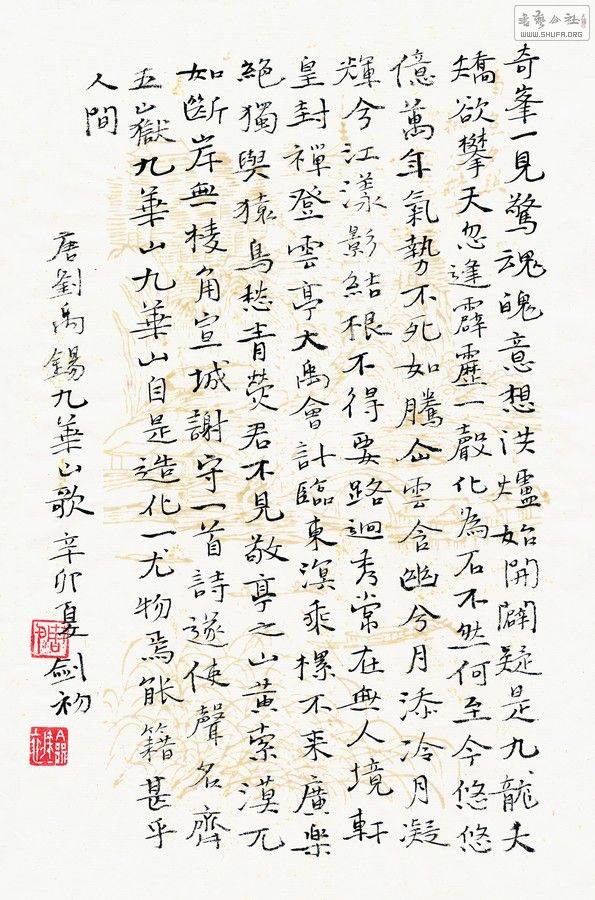 奇峯一見驚魂魄意想洪爐始開闢疑是九龍夭
矯欲攀天忽逢霹靂一聲化為石不然何至今悠悠
億萬年氣勢不死如騰仚雲含幽兮月添冷月凝
輝兮江漾影結根不得要路迥秀常在無人境軒
皇封禪登雲亭大禹會計臨東溟乘樏不來廣樂
絕獨與猿鳥愁青熒君不見敬亭之山黃索漠兀
如斷岸無棱角宣城謝守一首詩遂使聲名齊
五嶽九華山九華山自是造化一尤物焉能籍甚乎
人間
唐劉禹錫九華山歌辛卯夏劍初
WWW.SHUFA.ORG